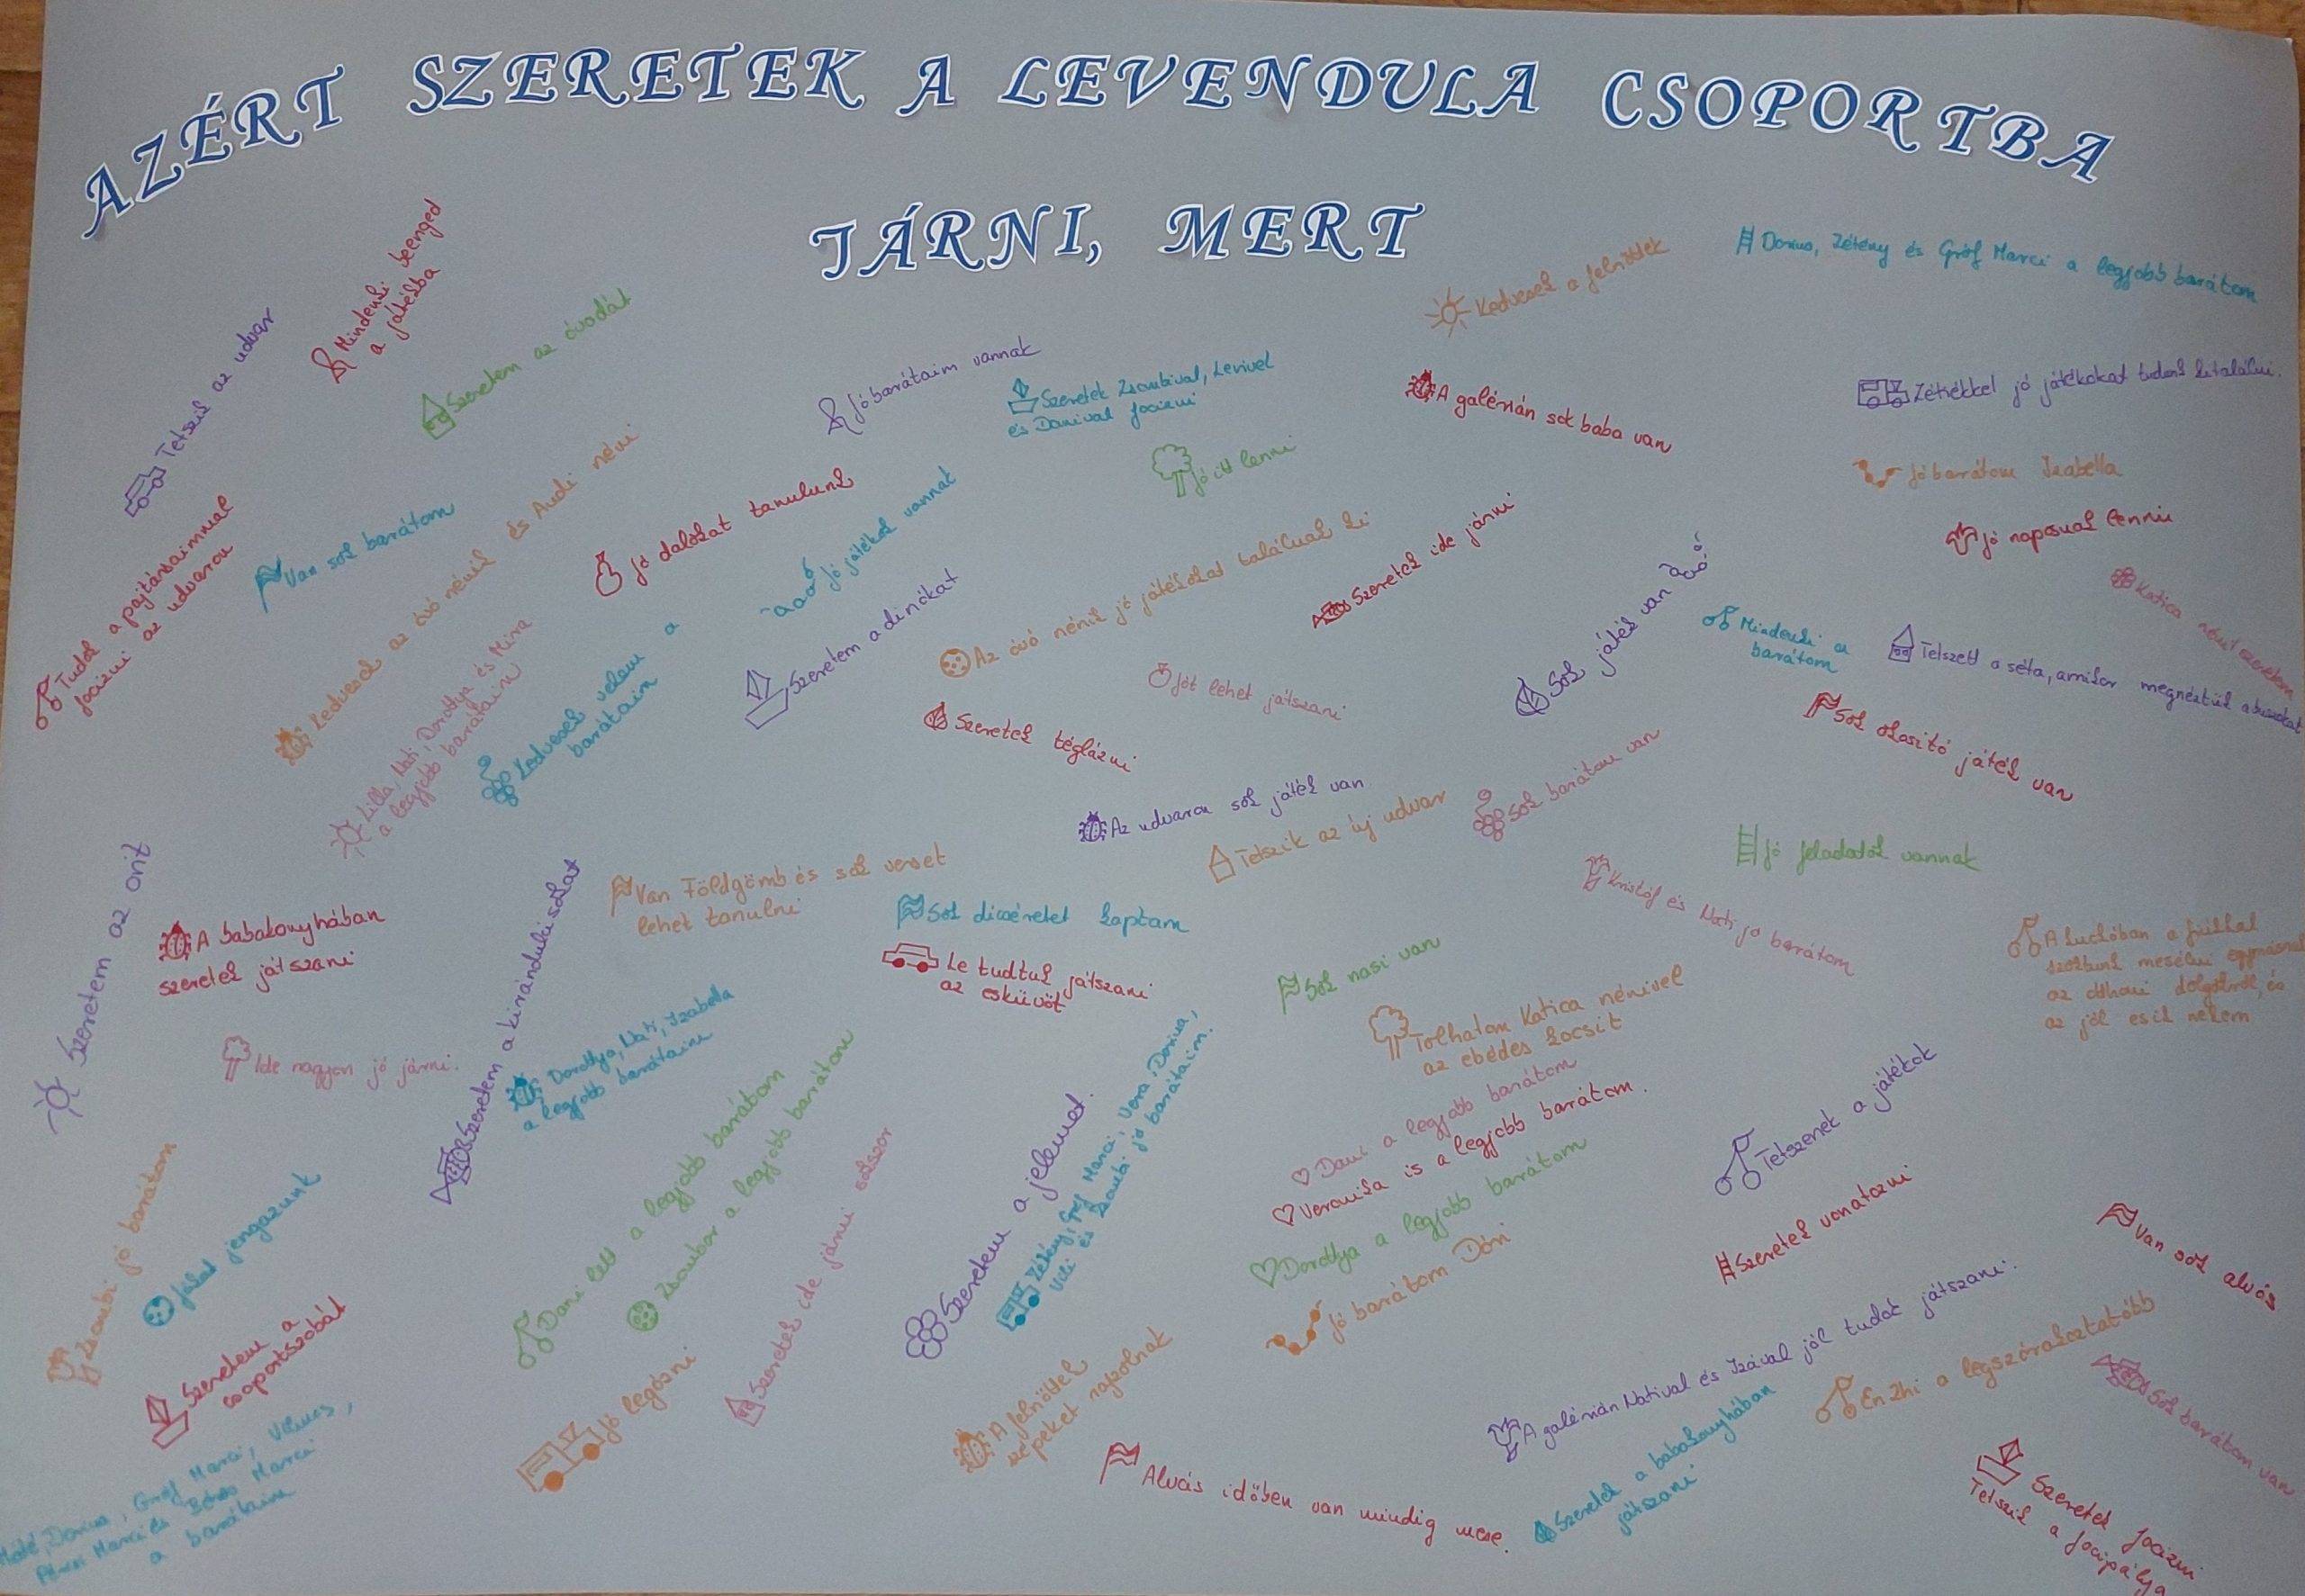 AZÉRT SZERETEK A LEVENDULA CSOPORTBA
JÁRNI, MERT
Mindenki beenged
a játékba
Tetszik az udvar
Szeretem az óvodát
Jó barátaim vannak
Szeretek Zsombival, Lenivel
és Danival focizni
Kedvesek a felnőttek
Dorius, Zétény és Gróf Marci a legjobb barátom
A galérián sok baba van
Zétiékkel jó játékokat tudok kitalálni.
Jó itt lenni
Jó barátom Izabella
Tudok a pajtásaimmal
focizni az udvaron
Van sok barátom
Kedvesek az óvó nénik és Audi néni
Jó dalokat tanulunk
Jó játékok vannak
Az óvó nénik jó játékokat találnak ki
Szeretek ide járni
Sok játék van
Jó naposnak lenni
Katica nénit szeretem
Lilla, Nati, Dorottya és Mira
a legjobb barátaim
Kedvesek velem a
barátaim
Szeretem a dinókat
Jót lehet játszani
Mindenki a
barátom
Tetszett a séta, amikor megnéztük a buszokat
Szeretek téglázni
Sok okosító játék van
Az udvaron sok játék van
Sok barátom van
Tetszik az új udvar
Jó feladatok vannak
Szeretem az ovit
A babakonyhában
szeretek játszani
Szeretem a kirándulásokat
Van Földgömb és sok verset
lehet tanulni
Sok dicséretet kaptam
Le tudtuk játszani
az esküvőt
Kristóf és Nati jó barátom
A hintóban a fiúkkal
szoktunk mesélni egymásnak
az otthoni dolgokról, és
az jól esik nekem
Sok nasi van
Tolhatom Katica nénivel
az ebédes kocsit
Ide nagyon jó járni.
Dorottya, Nati, Izabella
a legjobb barátaim
Dani a legjobb barátom
Veronika is a legjobb barátom.
Dorottya a legjobb barátom
Jó barátom Dóri
Tetszenek a játékok
Zsombi jó barátom
Jókat jengázunk
Dani lett a legjobb barátom
Zsombor a legjobb barátom
Szeretek ide járni sokszor
Szeretem a jelemet.
Zétény, Gróf Marci, Vera, Dorius,
Vili és Zsombi jó barátaim.
Szeretek vonatozni
Van sok alvós
Szeretem a
csoportszobát
Jó legózni
A felnőttek
szépeket rajzolnak
A galérián Natival és Izával jól tudok játszani.
Én Zhi a legszórakoztatóbb
Sok barátom van
Máté, Dorius, Gróf Marci, Vilmos,
Marci és Marci
a barátaim
Alvás időben van mindig mese.
Szeretek a babakonyhában
játszani
Szeretek focizni
Tetszik a focipálya